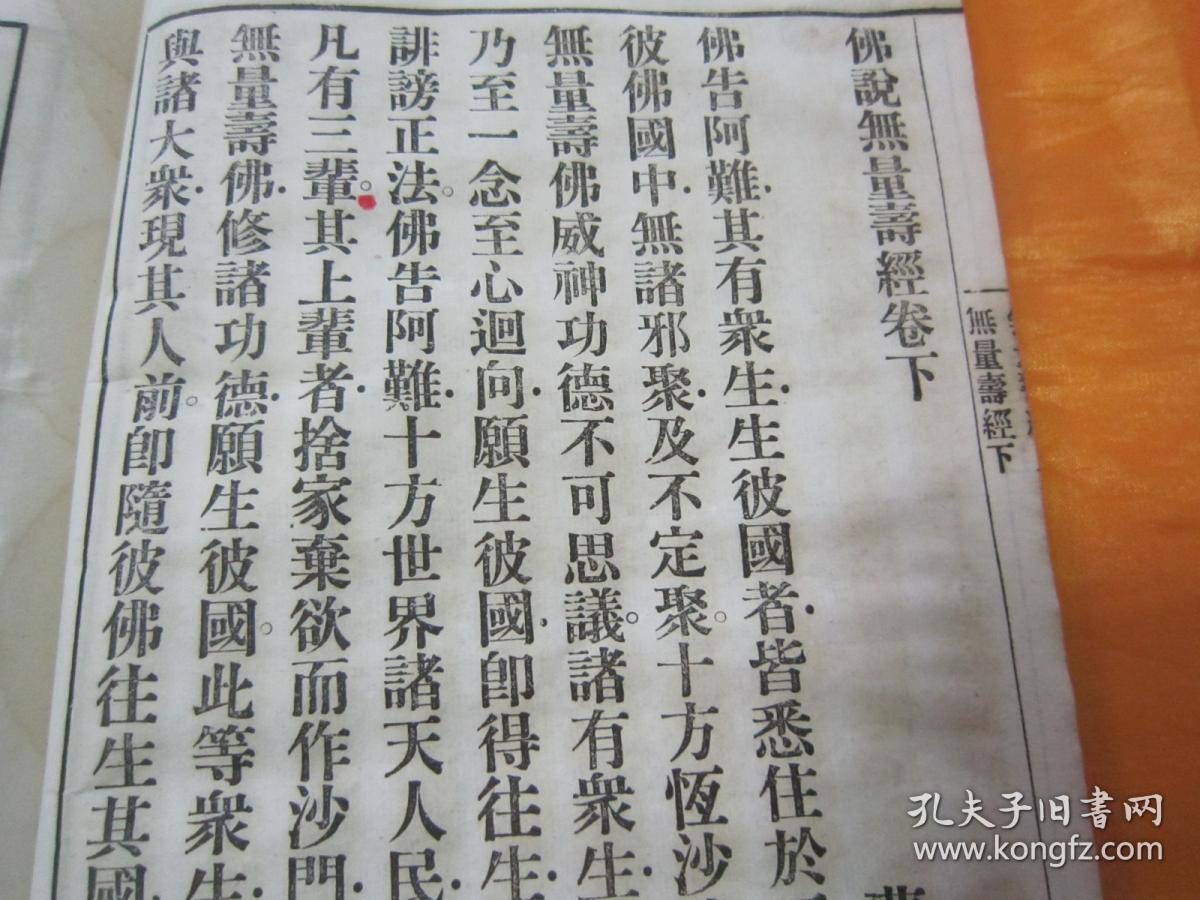 佛說無量壽經卷下
佛告阿難.其有衆生.生彼國者.皆悉住於
彼佛國中.無諸邪聚.及不定聚。十方恆沙
無量壽佛威神功德不可思議。諸有衆生.
乃至一念至心迴向.願生彼國.卽得往生.
誹謗正法。佛告阿難.十方世界諸天人民.
凡有三輩。其上輩者.捨家棄欲而作沙門.
無量壽佛.修諸功德.願生彼國。此等衆生.
與諸大衆.現其人前。卽隨彼佛往生其國.
無量壽經下
孔夫子旧书网
www.kongfz.com